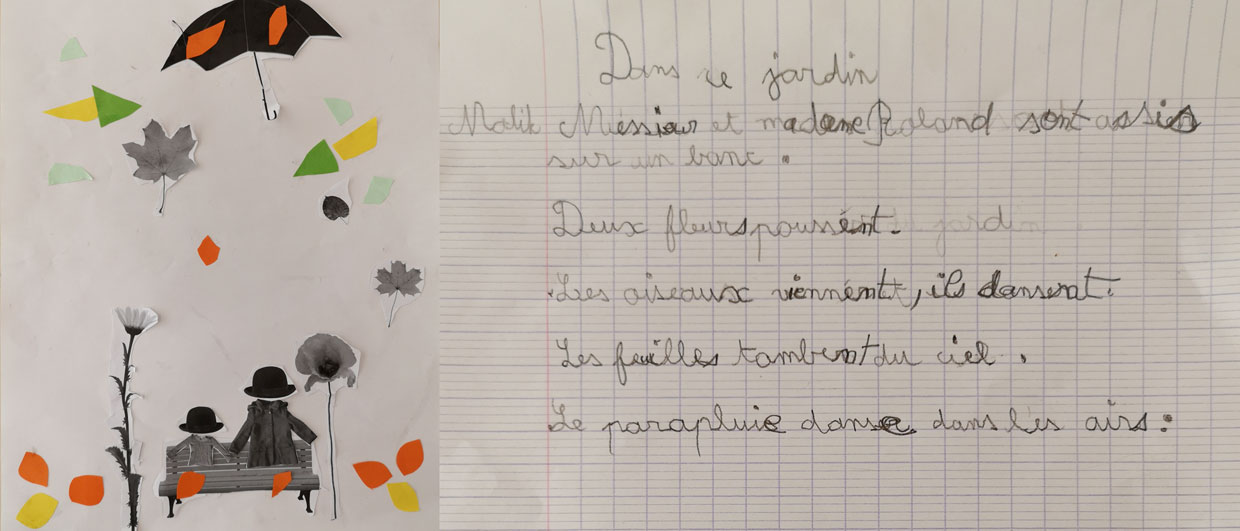 Dans le jardin
Malik Messieur et madame Roland sont assis
sur un banc.
Deux fleurs poussent. jardin
Les oiseaux viennent, ils dansent.
Les feuilles tombent du ciel.
Le parapluie danse dans les airs.